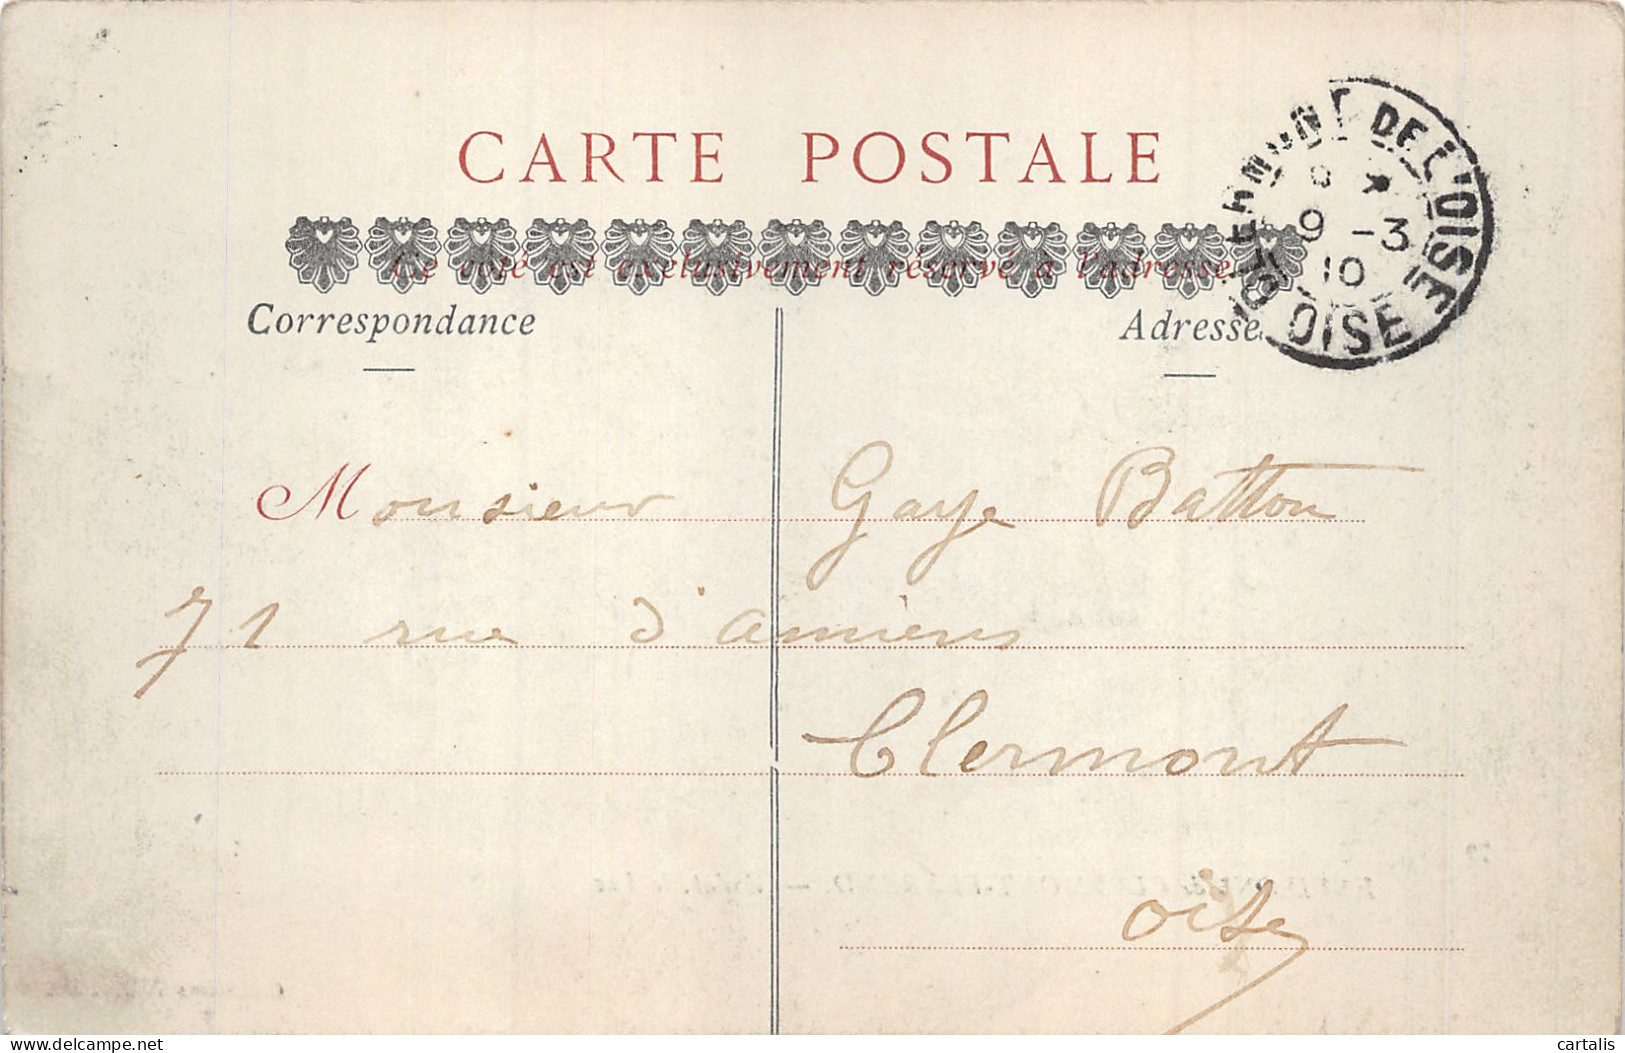 CARTE POSTALE
Ce côté est exclusivement réservé à l'adresse.
Correspondance
Adresse
CLERMONT DE L'OISE
9 -3
10
OISE
Monsieur Gaye Batton
71 rue d'amiens
Clermont
oise
delcampe.net
cartalis